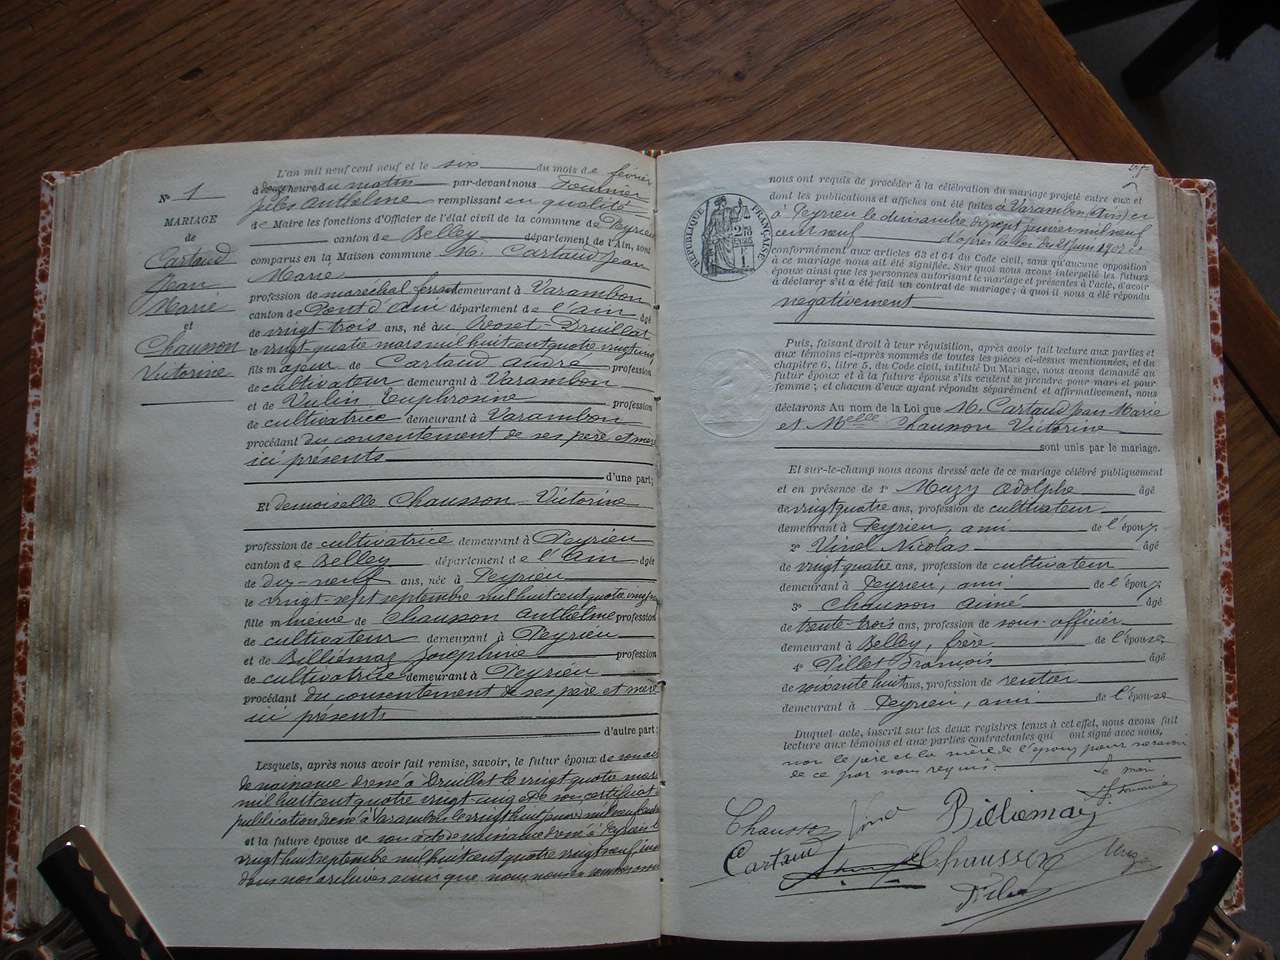 L'an mil neuf cent neuf et le six du mois de février
N° 1
à heure du matin par-devant nous Fournier
Jules Anthelme remplissant en qualité
MARIAGE
de Maire les fonctions d'Officier de l'état civil de la commune de Peyrieu
de
canton de Belley département de l'Ain, sont
Cartaud
comparus en la Maison commune M. Cartaud Jean
Jean
Marie
Marie
profession de maréchal ferrant demeurant à Varambon
et
canton de Pont d'Ain département de l'Ain âgé
Chausson
de vingt-trois ans, né à Druillat
Victorine
le vingt-quatre mars mil huit cent quatre vingt cinq
fils majeur de Cartaud André profession
de cultivateur demeurant à Varambon
et de Vulin Euphrosine profession
de cultivatrice demeurant à Varambon
procédant du consentement de ses père et mère
ici présents
d'une part;
Et demoiselle Chausson Victorine
profession de cultivatrice demeurant à Peyrieu
canton de Belley département de l'Ain âgée
de dix-neuf ans, née à Peyrieu
le vingt-sept septembre mil huit cent quatre vingt
fille mineure de Chausson Anthelme profession
de cultivateur demeurant à Peyrieu
et de Billiémaz Joséphine profession
de cultivatrice demeurant à Peyrieu
procédant du consentement de ses père et mère
ici présents
d'autre part;
Lesquels, après nous avoir fait remise, savoir, le futur époux de son acte
de naissance dressé à Druillat le vingt quatre mars
mil huit cent quatre vingt cinq et de son certificat
publication dressé à Varambon le vingt huit janvier mil neuf cent neuf
et la future épouse de son acte de naissance dressé à Peyrieu le
vingt huit septembre mil huit cent quatre vingt neuf, inscrit
dans nos archives ainsi que nous nous en sommes assuré
nous ont requis de procéder à la célébration du mariage projeté entre eux et
dont les publications et affiches ont été faites à Varambon (Ain) et
à Peyrieu le dimanche dix sept janvier mil neuf
cent neuf d'après la loi du 21 juin 1907
conformément aux articles 63 et 64 du Code civil, sans qu'aucune opposition
à ce mariage nous ait été signifiée. Sur quoi nous avons interpellé les futurs
époux ainsi que les personnes autorisant le mariage et présentes à l'acte, d'avoir
à déclarer s'il a été fait un contrat de mariage; à quoi il nous a été répondu
négativement
RÉPUBLIQUE FRANÇAISE
Puis, faisant droit à leur réquisition, après avoir fait lecture aux parties et
aux témoins ci-après nommés de toutes les pièces ci-dessus mentionnées, et du
chapitre 6, titre 5, du Code civil, intitulé Du Mariage, nous avons demandé au
futur époux et à la future épouse s'ils veulent se prendre pour mari et pour
femme; et chacun d'eux ayant répondu séparément et affirmativement, nous
déclarons Au nom de la Loi que M. Cartaud Jean Marie
et Melle Chausson Victorine
sont unis par le mariage.
Et sur-le-champ nous avons dressé acte de ce mariage célébré publiquement
et en présence de 1° Muzy Adolphe âgé
de vingt quatre ans, profession de cultivateur
demeurant à Peyrieu, ami de l'époux
2° Vinel Nicolas âgé
de vingt quatre ans, profession de cultivateur
demeurant à Peyrieu, ami de l'époux
3° Chausson Aimé âgé
de trente-trois ans, profession de sous-officier
demeurant à Belley, frère de l'épouse
4° Pillet François âgé
de soixante huit ans, profession de rentier
demeurant à Peyrieu, ami de l'épouse
Duquel acte, inscrit sur les deux registres tenus à cet effet, nous avons fait
lecture aux témoins et aux parties contractantes qui ont signé avec nous,
non le père et la mère de l'époux pour ne savoir
de ce par nous requis
Le maire
Chausson Vinel Billiemaz
Cartaud Chausson Muzy